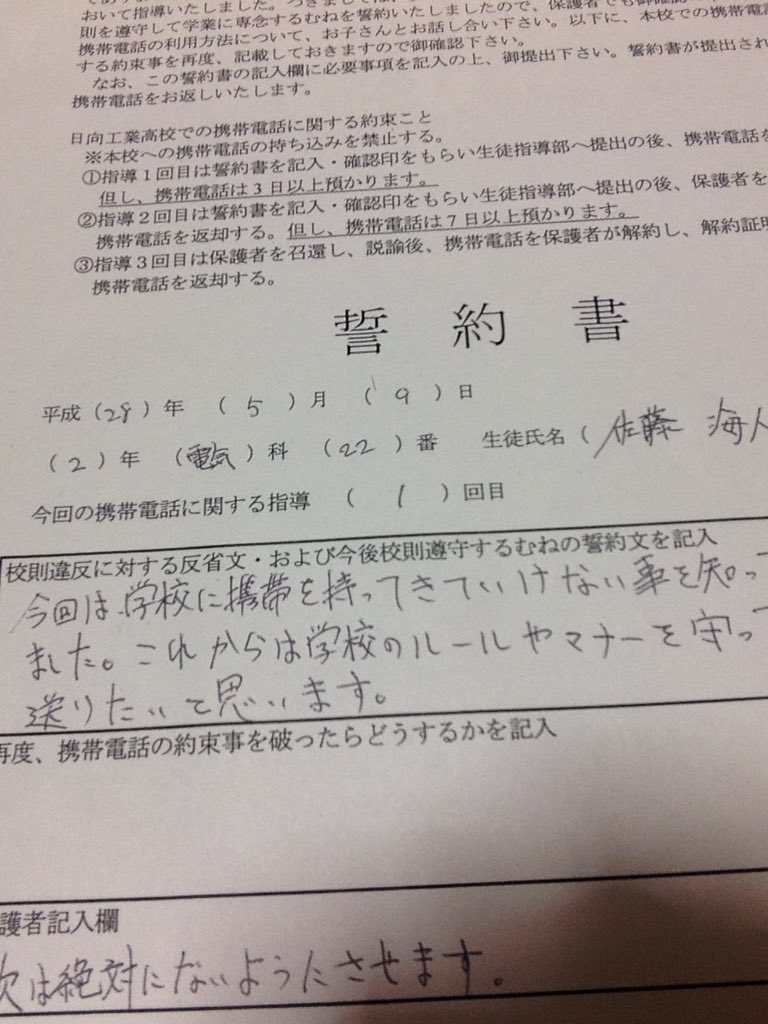 おいて指導いたしました。つきましては、
則を遵守して学業に専念するむねを誓約いたしましたので、保護者でも御確認
携帯電話の利用方法について、お子さんとお話し合い下さい。以下に、本校での携帯電話
する約束事を再度、記載しておきますので御確認下さい。
なお、この誓約書の記入欄に必要事項を記入の上、御提出下さい。誓約書が提出され
携帯電話をお返しいたします。
日向工業高校での携帯電話に関する約束こと
※本校への携帯電話の持ち込みを禁止する。
①指導1回目は誓約書を記入・確認印をもらい生徒指導部へ提出の後、携帯電話を
但し、携帯電話は3日以上預かります。
②指導2回目は誓約書を記入・確認印をもらい生徒指導部へ提出の後、保護者を
携帯電話を返却する。但し、携帯電話は7日以上預かります。
③指導3回目は保護者を召還し、説諭後、携帯電話を保護者が解約し、解約証明
携帯電話を返却する。
誓 約 書
平成(28)年 (5)月 (9)日
(2)年 (電気)科 (22)番 生徒氏名(佐藤 海人
今回の携帯電話に関する指導 (1)回目
校則違反に対する反省文・および今後校則遵守するむねの誓約文を記入
今回は、学校に携帯を持ってきていけない事を知って
ました。これからは学校のルールやマナーを守って
送りたいと思います。
再度、携帯電話の約束事を破ったらどうするかを記入
護者記入欄
次は絶対にないようにさせます。